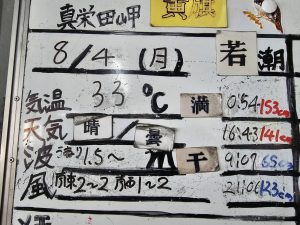 真栄田岬 黄旗
8/4 (月) 若潮
気温 33℃ 満 0:54 153cm
天気 晴/曇 16:43 141cm
波 1.5～ 干 9:07 65cm
風 南東2~2 南西1~2 21:06 123cm